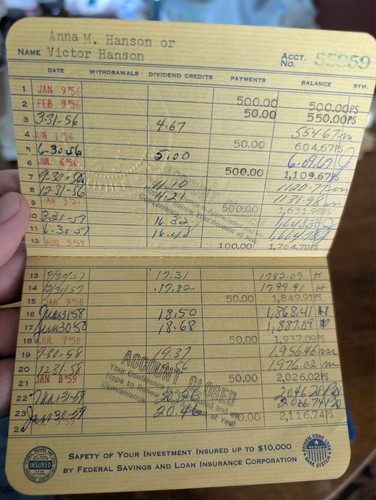 Anna M. Hanson or
NAME Victor Hanson ACCT. NO. 55959
DATE WITHDRAWALS DIVIDEND CREDITS PAYMENTS BALANCE SYM.
1 JAN 9'56 500.00 500.00PS
2 FEB 9'56 50.00 550.00PS
3 3-31-56 4.67 554.67
4 JUN 1'56 50.00 604.67PS
5 6-30-56 5.00 609.67
6 JUL 6'56 500.00 1,109.67PS
7 9-30-56 11.10 1120.77
8 12-31-56 11.21 1131.98
9 JAN 5'57 500.00 1,631.98PS
10 3-31-57 16.32
11 6-30-57 16.48
12 AUG 5'57 100.00 1,764.78PS
13 9/30/57 17.31 1782.09
14 12/31/57 17.82 1799.91
15 JAN 9'58 50.00 1,849.91PS
16 Mar 31 58 18.50 1,868.41
17 Jun 30 58 18.68 1,887.09
18 JUL 7'58 50.00 1,937.09PS
19 9-30-58 19.37 1956.46
20 12-31-58 1976.02
21 JAN 8'59 50.00 2,026.02PS
22 Mar 31-59 20.26 2046.28
23 Jun 30-59 20.46 2066.74
24 50.00 2,116.74PS
ACCOUNT CLOSED
Your Confidence
Hope to
Convenience
SAFETY OF YOUR INVESTMENT INSURED UP TO $10,000
BY FEDERAL SAVINGS AND LOAN INSURANCE CORPORATION
INSURED